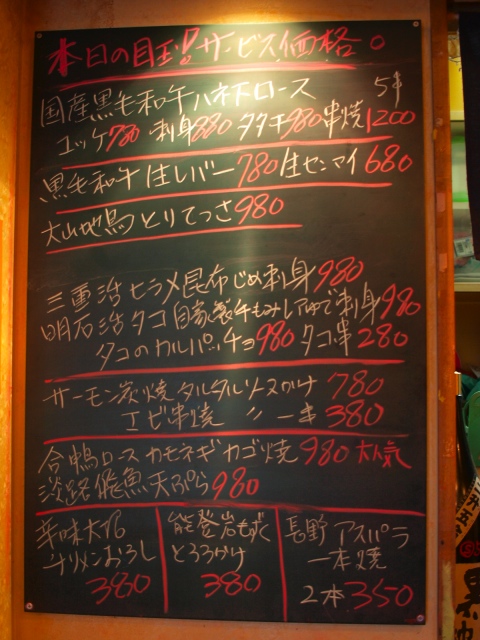 本日の目玉!サービス価格。
国産黒毛和牛ハネ下ロース 5本
ユッケ780 刺身880 タタキ980 串焼1200
黒毛和牛 生レバー780 生センマイ680
大山地鳥 とりてっさ980
三重活ヒラメ昆布じめ刺身980
明石活タコ 自家製手もみしてゆで刺身980
タコのカルパッチョ980 タコ串280
サーモン炭焼タルタルソースかけ 780
エビ串焼 〃 一本380
合鴨ロース カモネギカゴ焼 980 大人気
淡路飛魚天ぷら980
辛味大根
チリメンおろし
380
能登岩もずく
とろろかけ
380
長野 アスパラ
一本焼
2本350